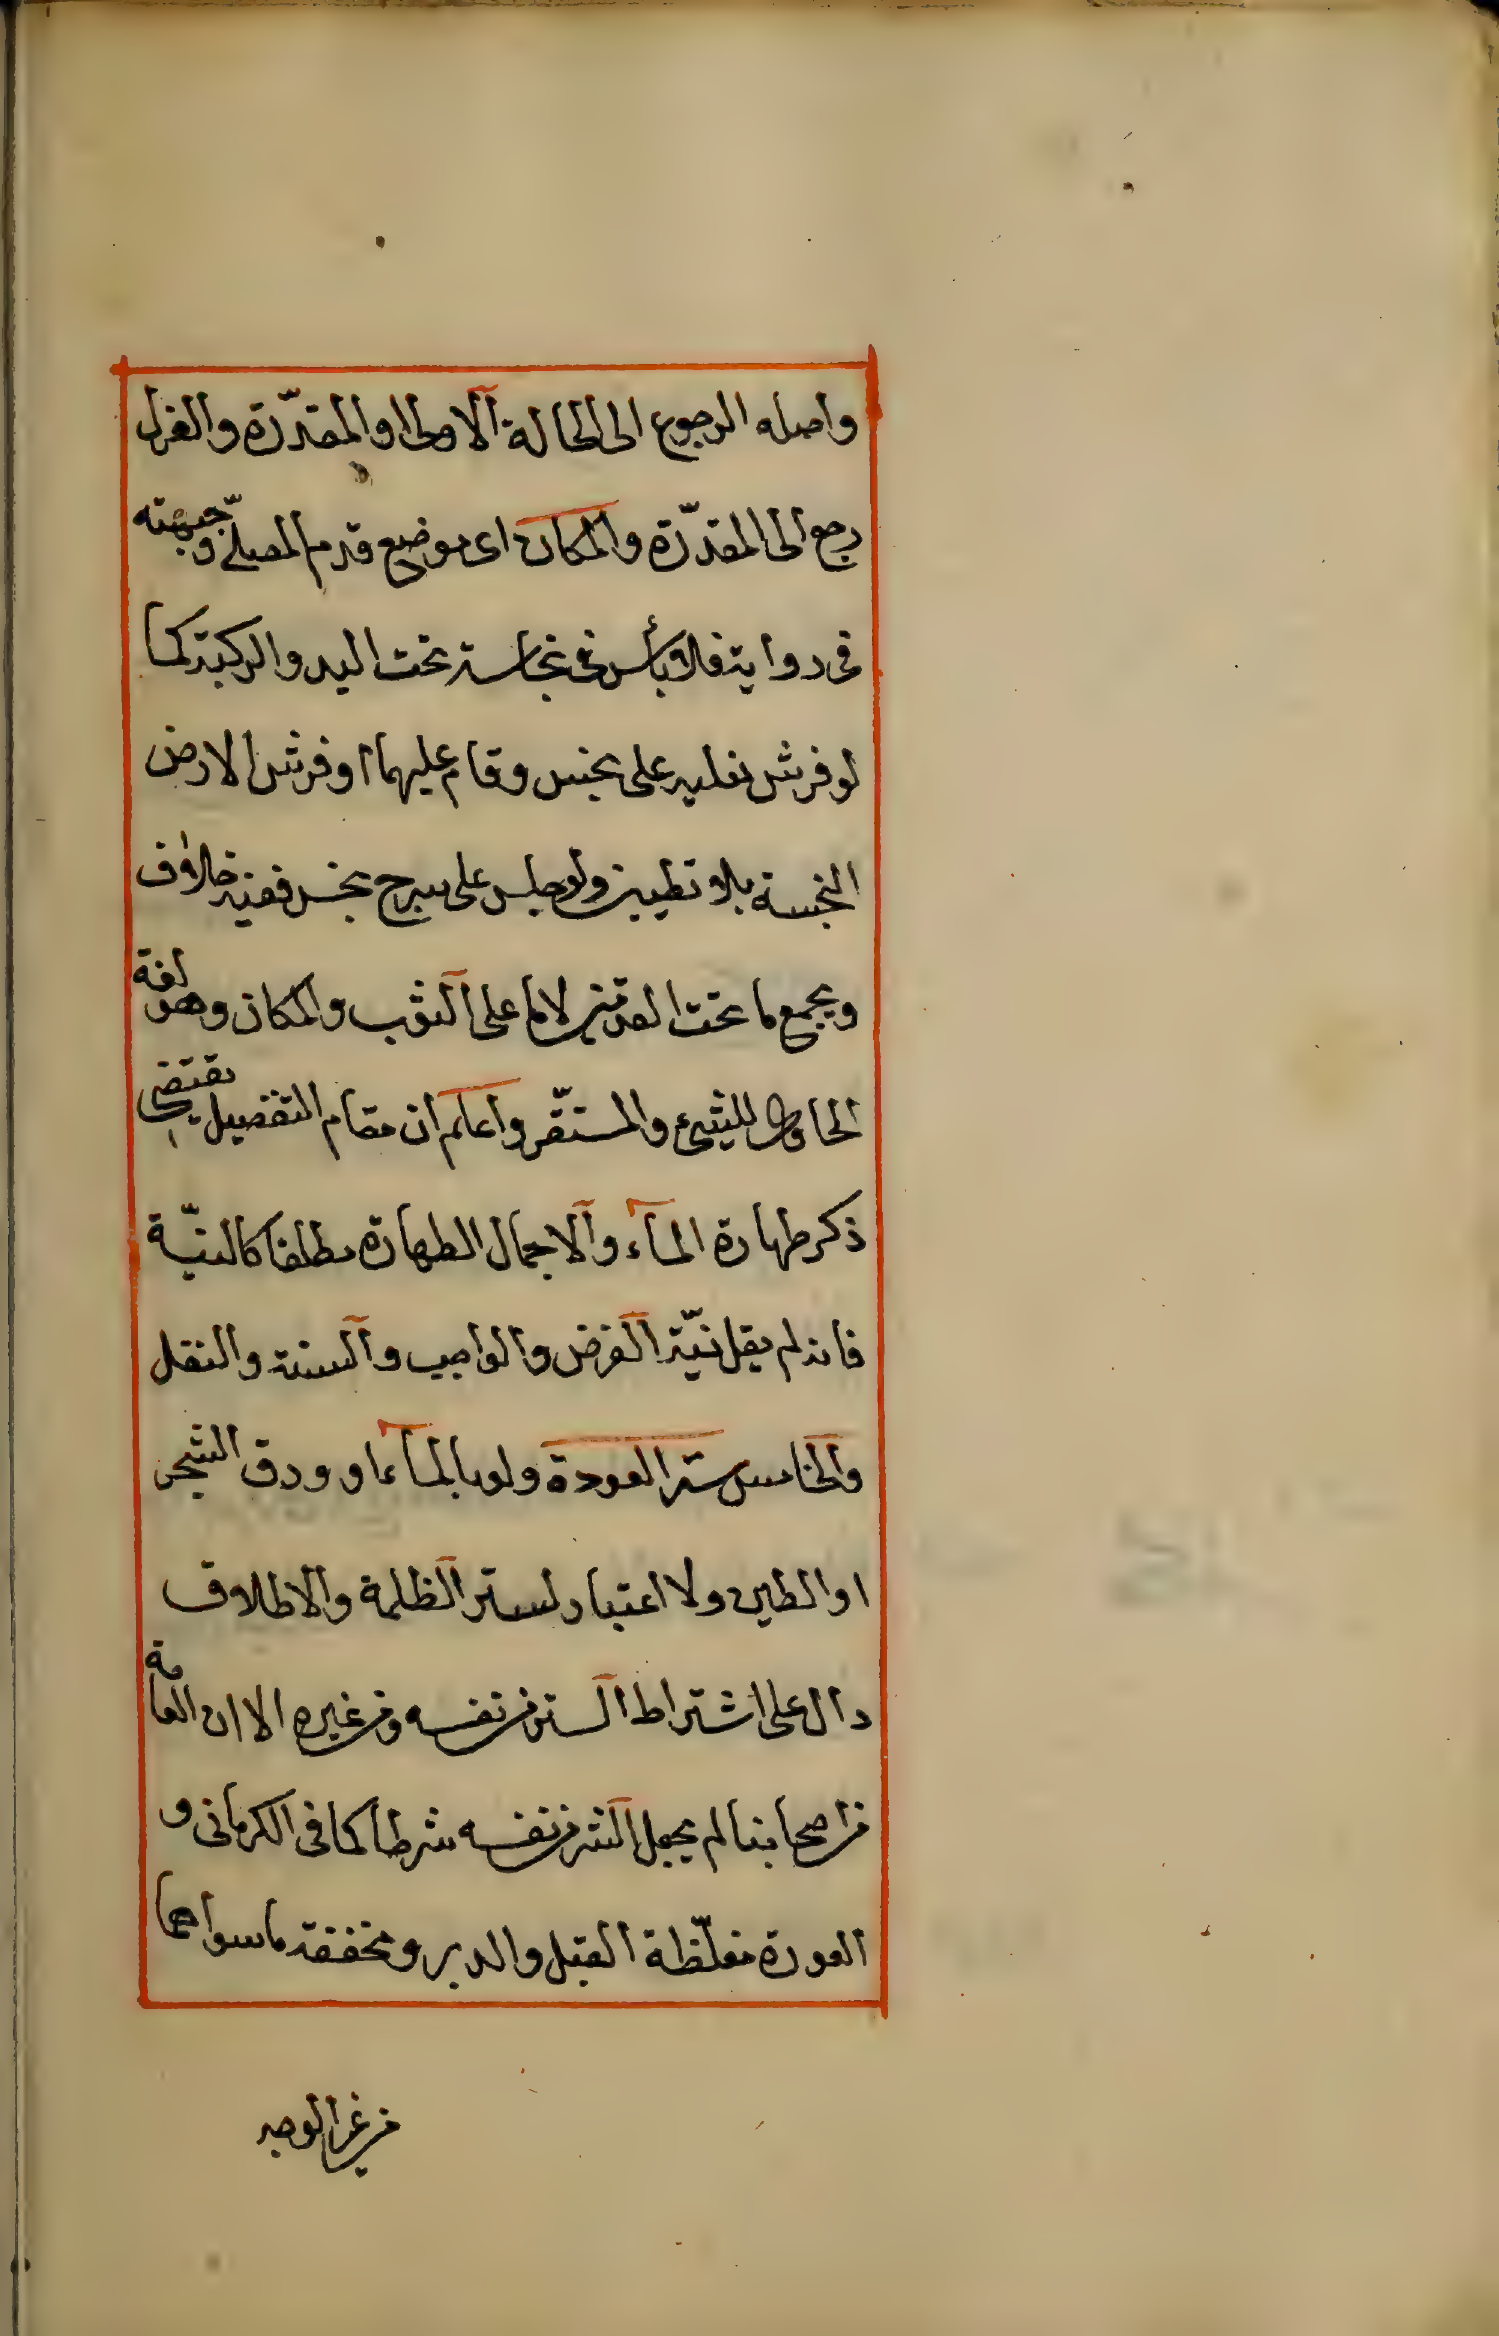 واصله الرجوع الى الحالة الاولى او المقدّرة والغزل
رجع الى المقدّرة والمكان اى موضع قدم المصلّى وجبهته
فى رواية فلا بأس فى نجاسة تحت اليد والركبة كما
لو فرش نعليه على نجس وقام عليهما او فرش الارض
النجسة بلا تطيين ولو جلس على سرج نجس ففيه خلاف
ويجمع ما تحت القدمين لا ما على الثوب والمكان وهو لغة
الحاوى للشىء والمستقّر واعلم ان مقام التفصيل يقتضى
ذكر طهارة المآء والاجمال الطهارة مطلقا كالنيّة
فانه لم يقل نيّة الفرض والواجب والسنة والنفل
والخامس ستر العورة ولو بالمآء او ورق الشجر
او الطين ولا اعتبار لستر الظلمة والاطلاق
دال على اشتراط الستر من نفسه ومن غيره الا ان العامة
من اصحابنا لم يجعل الستر من نفسه شرطا كما فى الكرمانى و
العورة مغلّظة القبل والدبر ومخففة ما سواهما
من غير الوجه